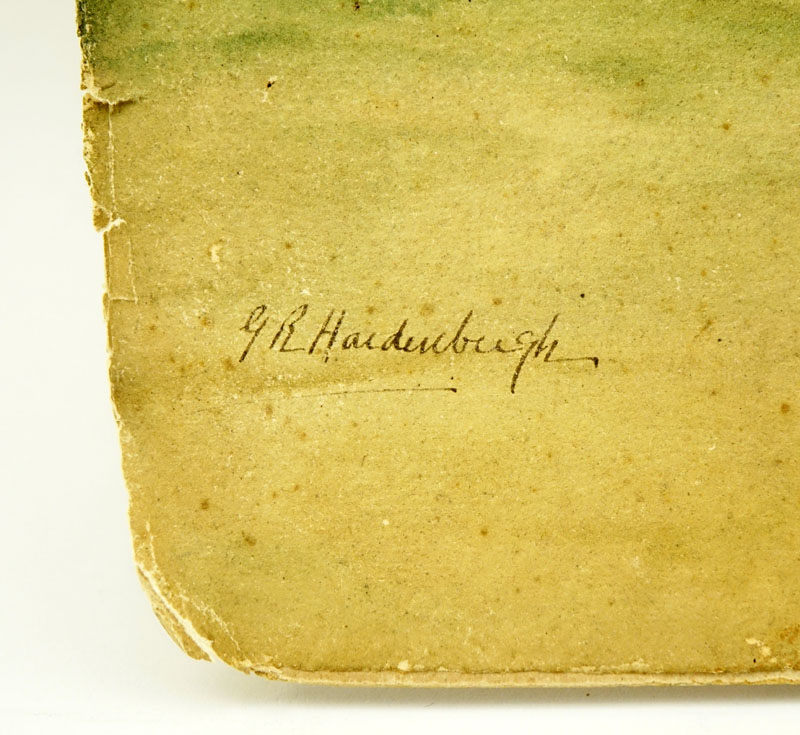 G R Hardenbergh